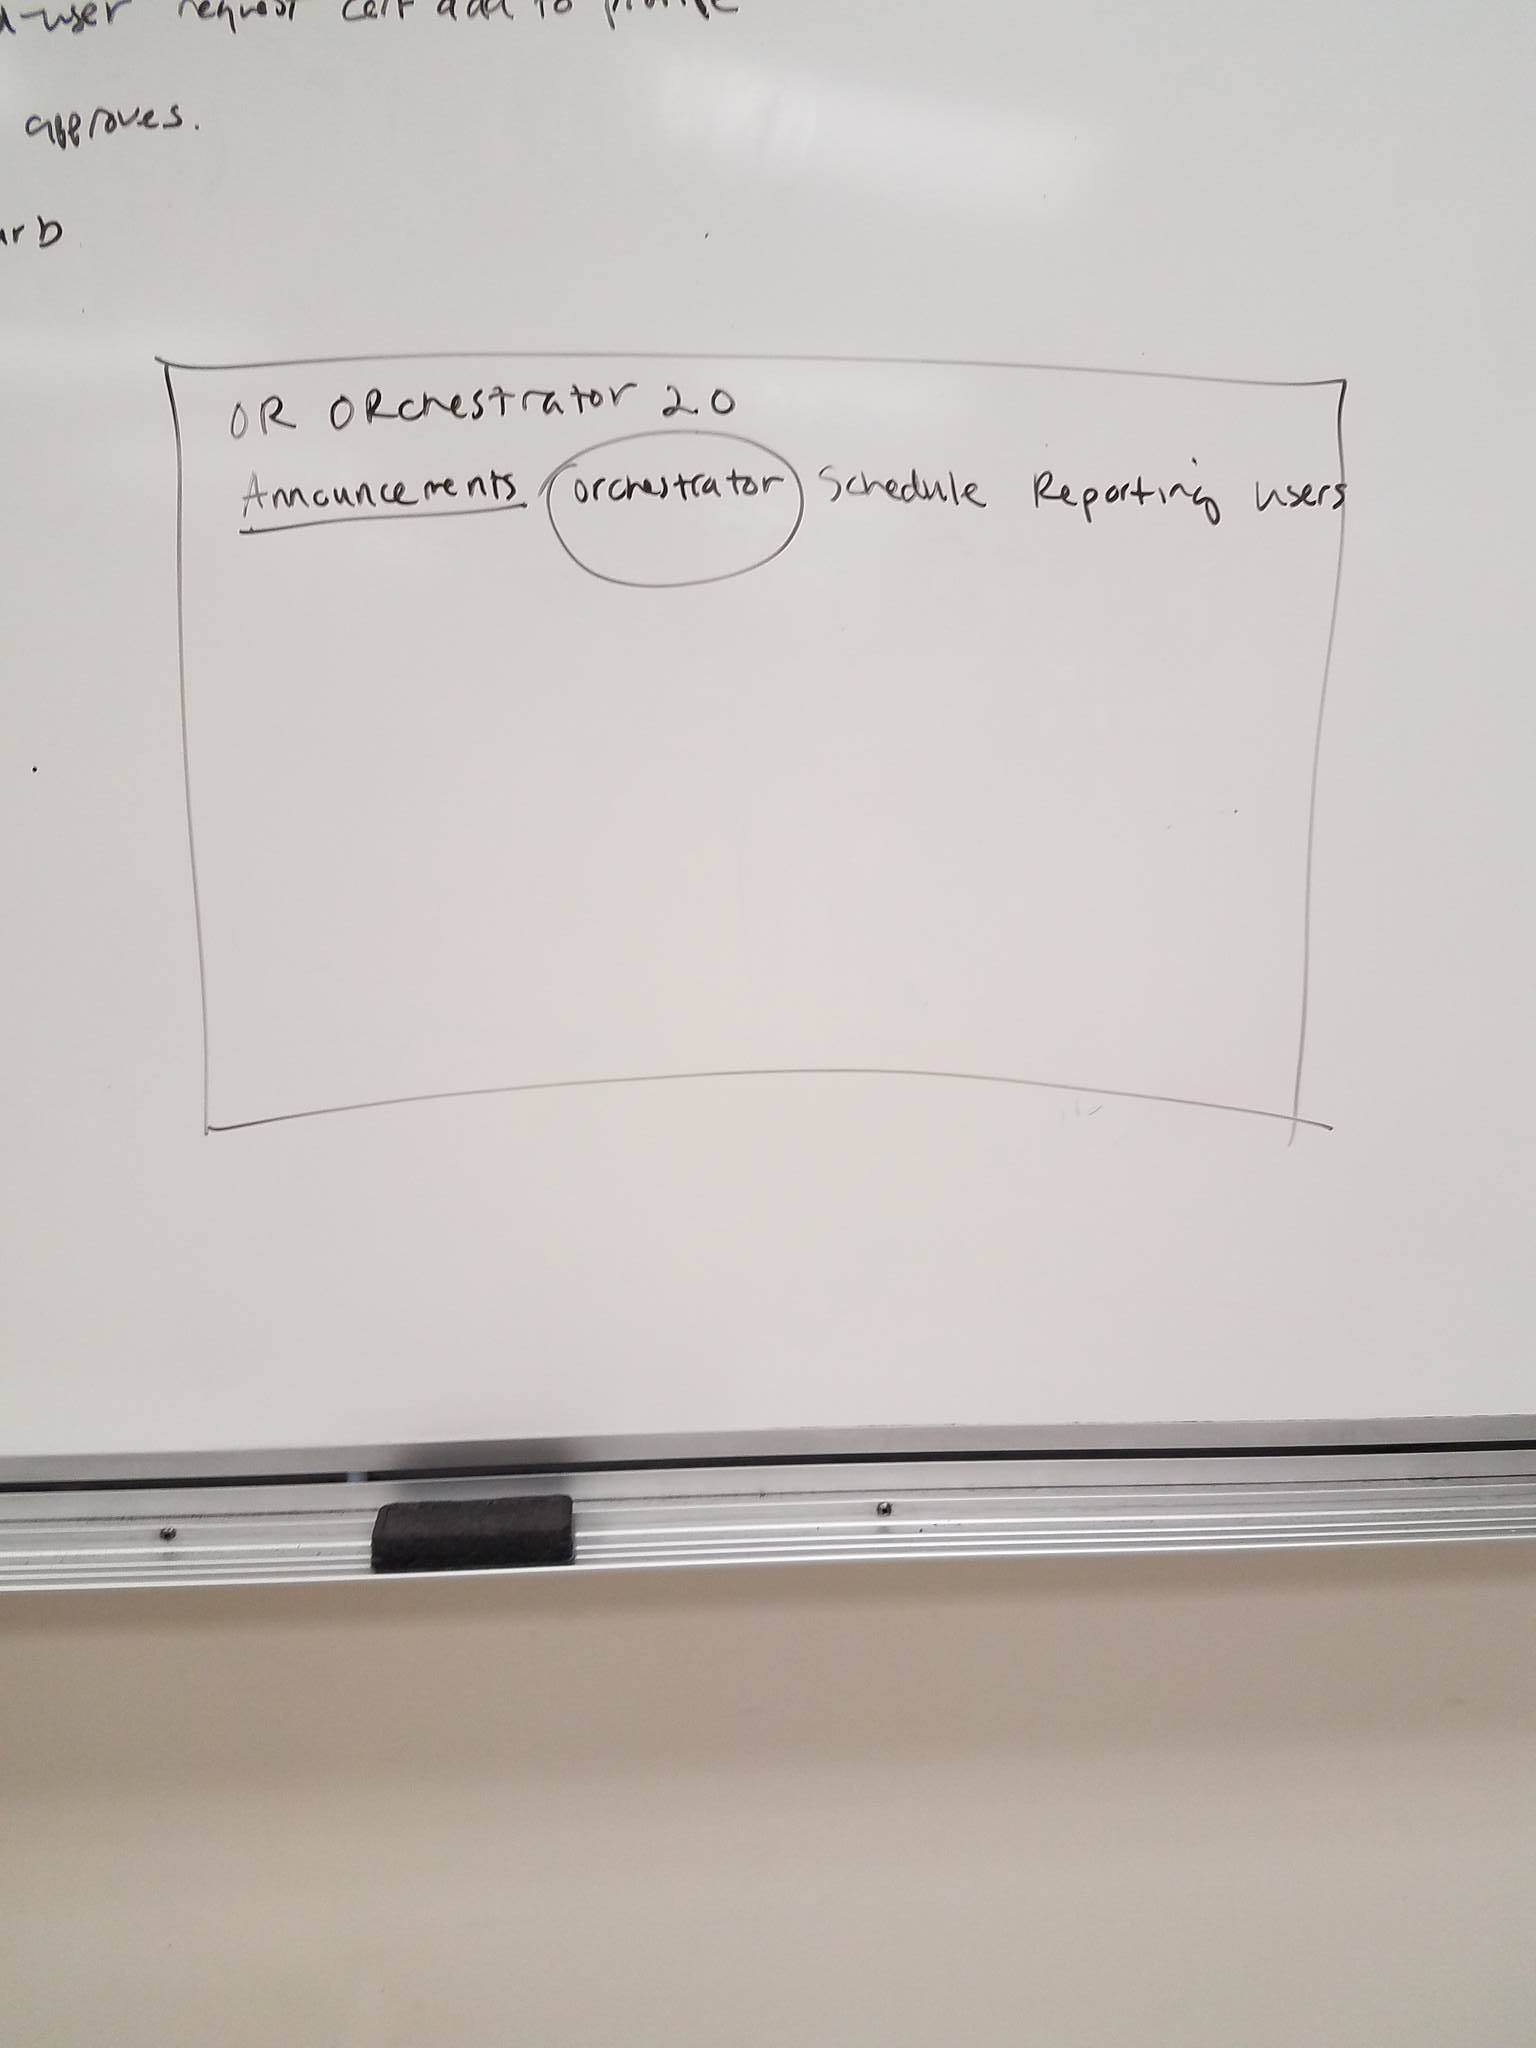 request cert add to profile
approves.
OR ORchestrator 2.0
Announcements orchestrator Schedule Reporting users